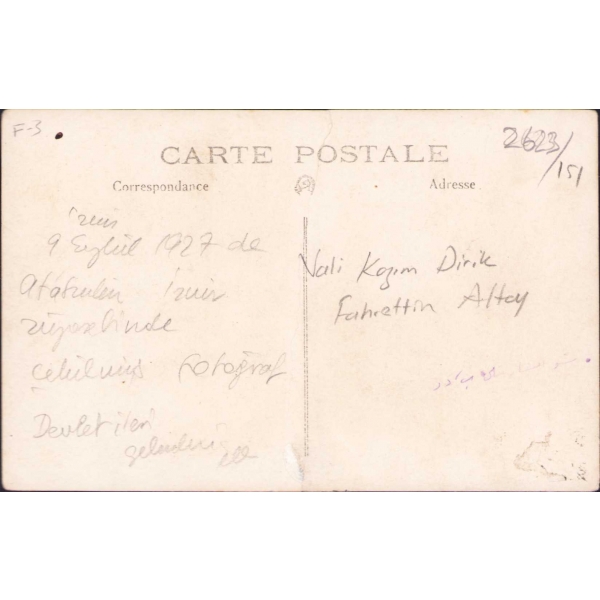 F-3
2623/151
CARTE POSTALE
Correspondance
Adresse
İzmir
9 Eylül 1927 de
Atatürkün İzmir
ziyaretinde
çekilmiş fotoğraf
Devlet ileri
Vali Kazım Dirik
Fahrettin Altay